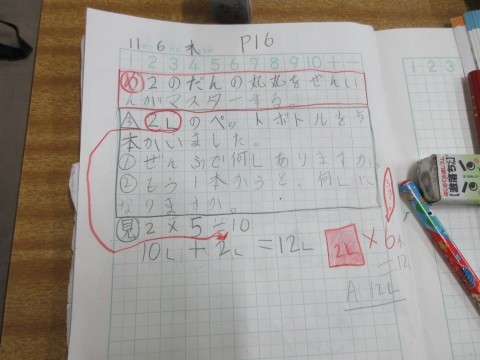 11 6 木 P16
1 2 3 4 5 6 7 8 9 10 + −
め 2のだんの九九をぜんい
んがマスターする。
今 2Lのペットボトルを5
本かいました。
① ぜんぶで何Lありますか。
② もう 本かうと 何Lに
なりますか。
見 2×5=10
10L+2L=12L
2L ×6本
=12
A 12L
1 2 3